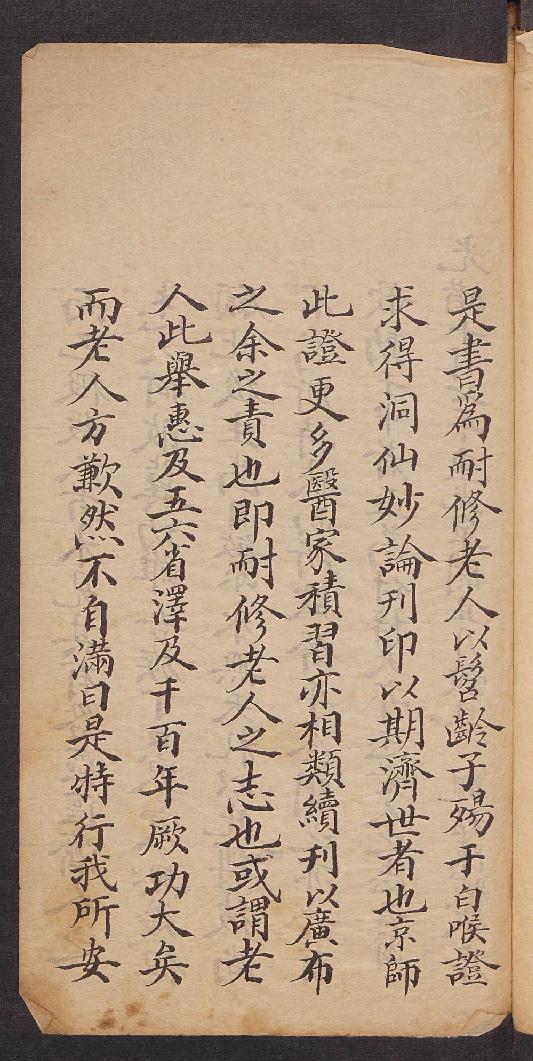 是書為耐修老人以髫齡子殤于白喉證
求得洞仙妙論刊印以期濟世者也京師
此證更多醫家積習亦相類續刊以廣布
之余之責也即耐修老人之志也或謂老
人此舉惠及五六省澤及千百年厥功大矣
而老人方歉然不自滿曰是特行我所安